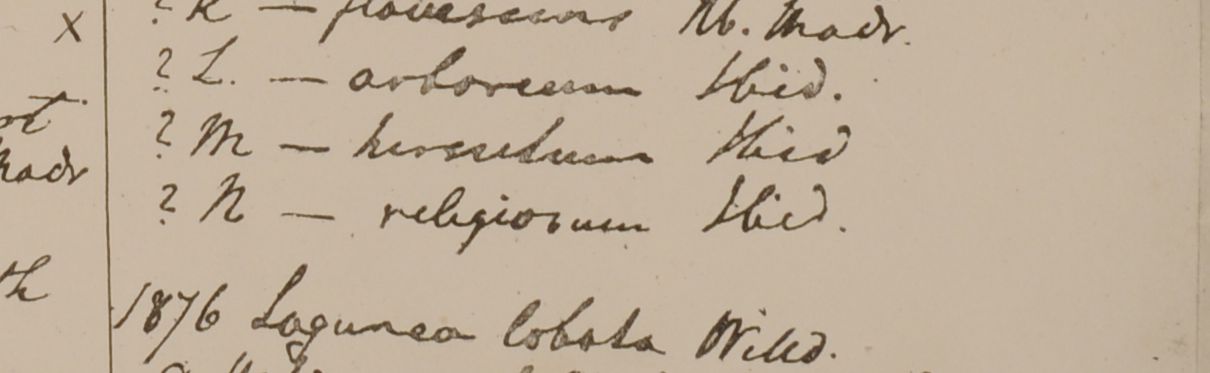 x ? K — flavescens Hb. Madr.
? L. — arboreum Ibid.
? M — hirsutum Ibid
Madr
? N — religiosum Ibid.
1876 Lagunea lobata Willd.